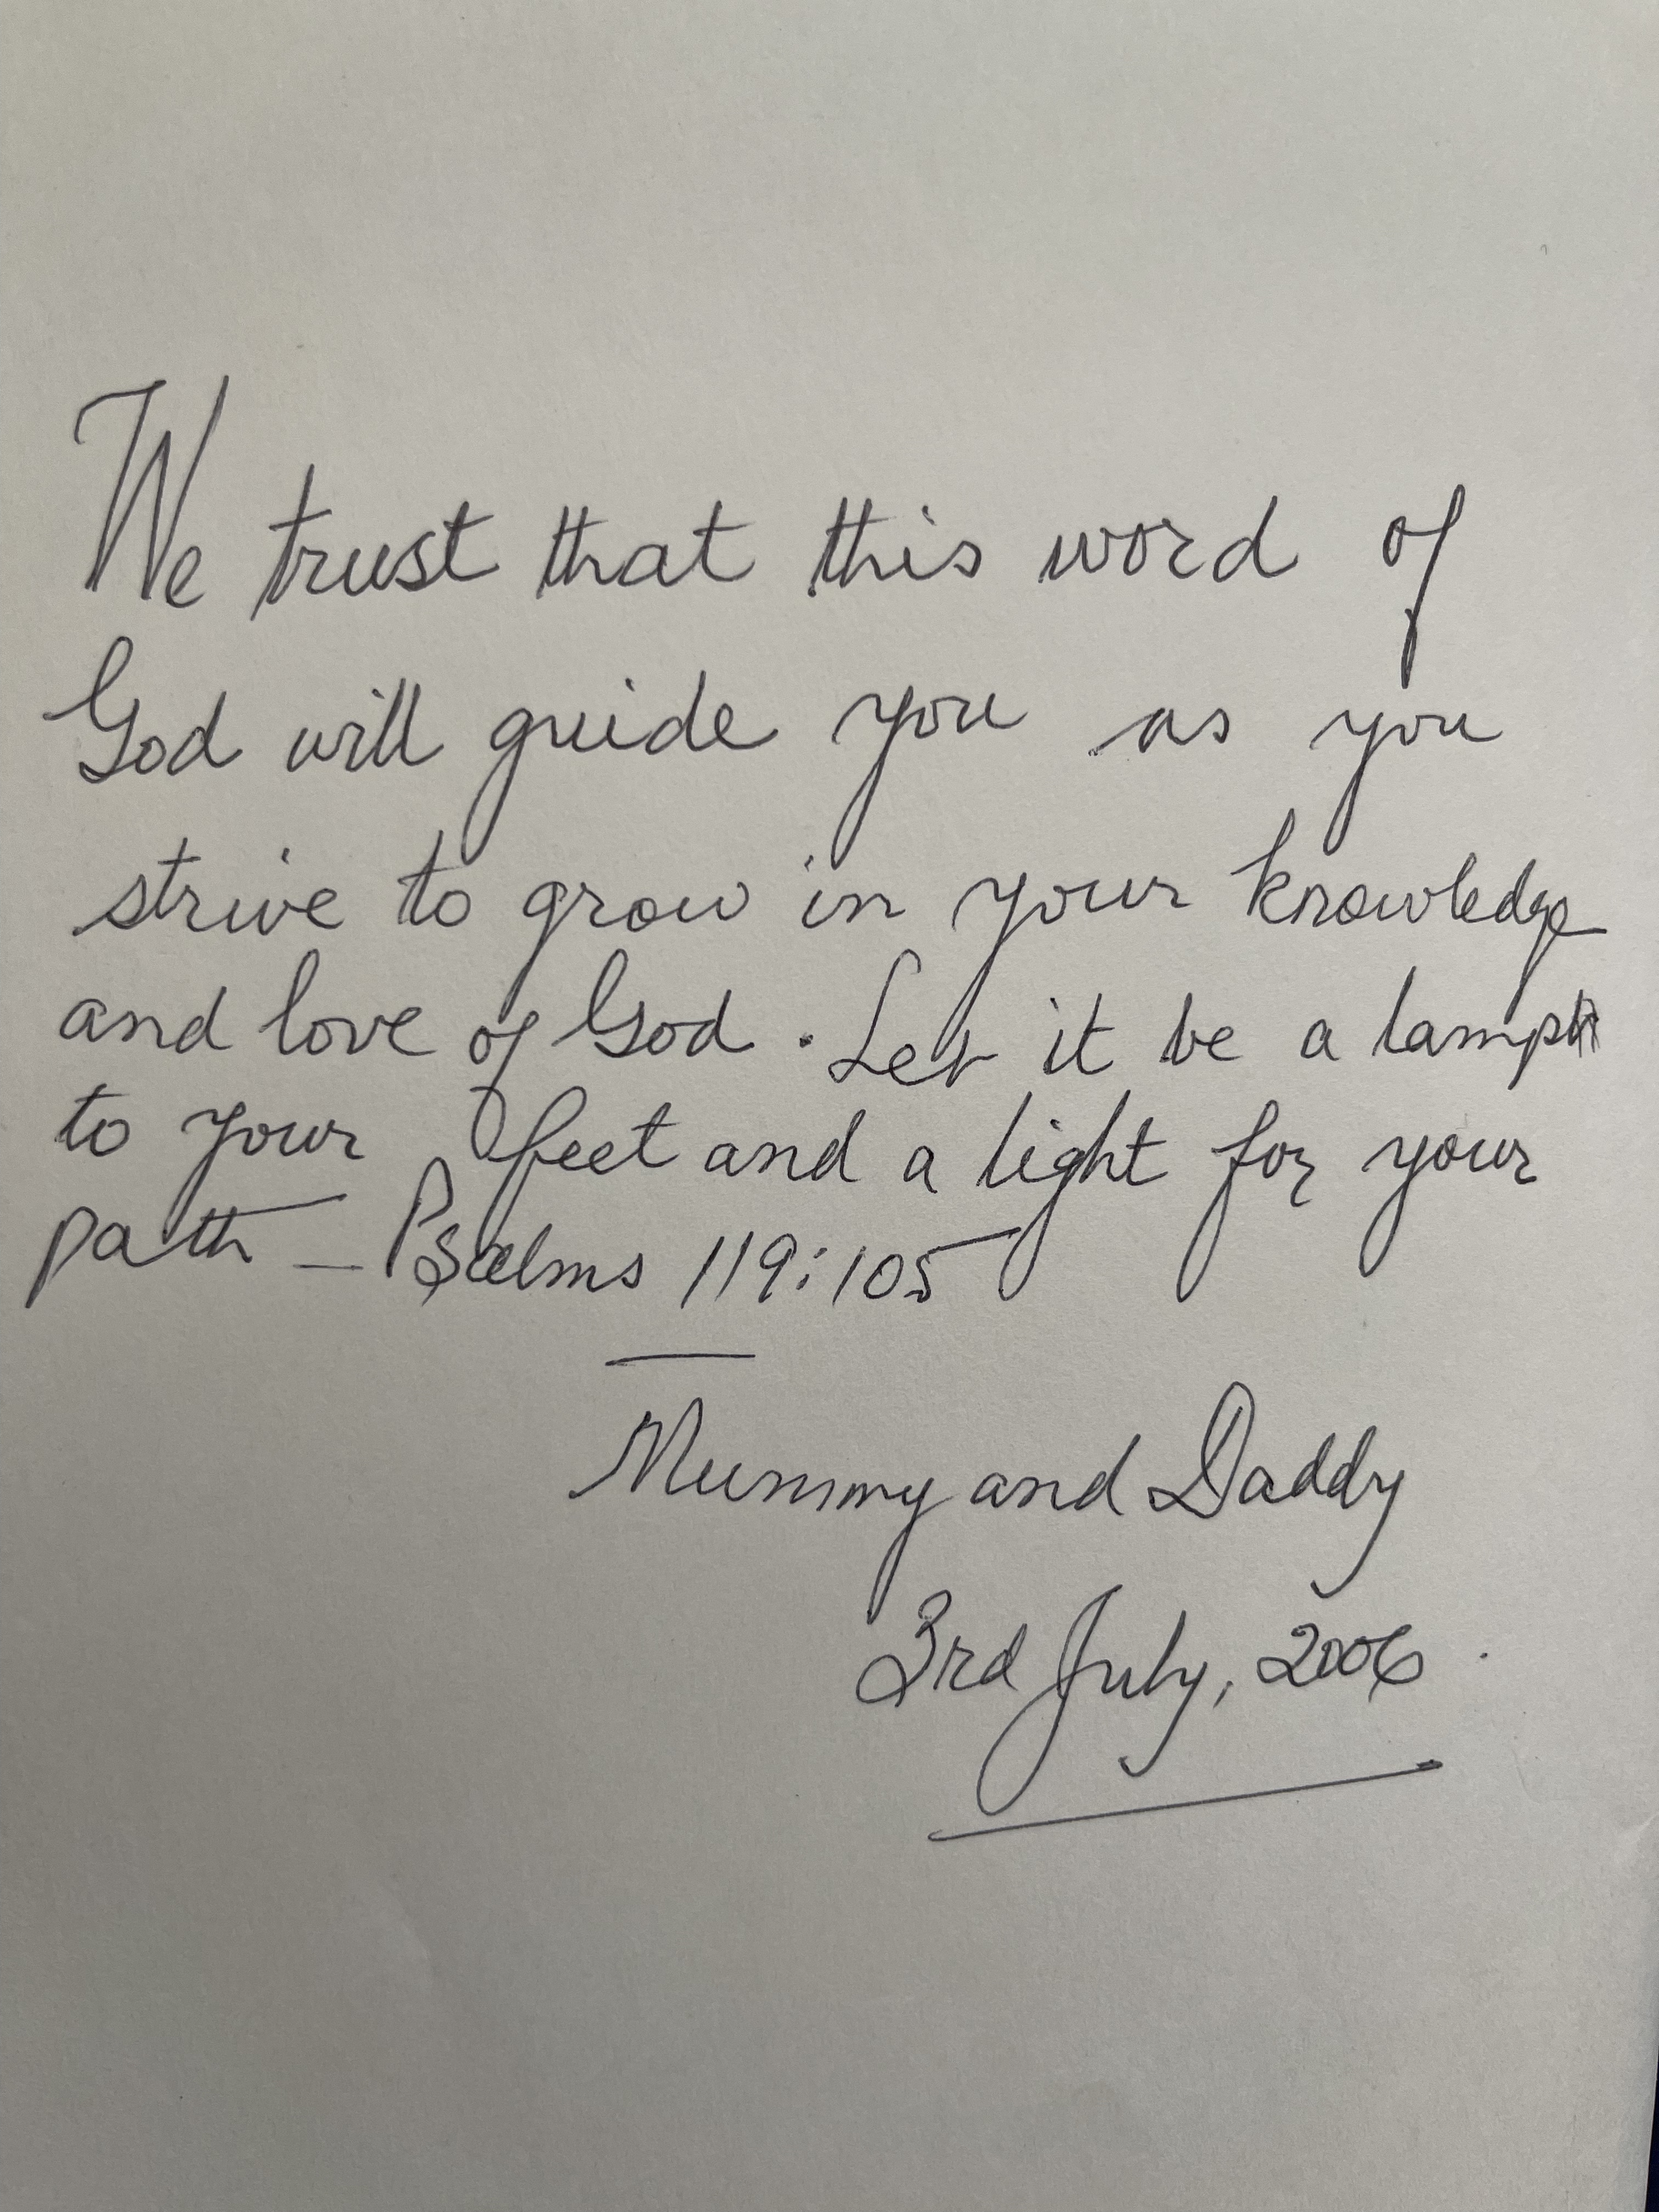 We trust that this word of
God will guide you as you
strive to grow in your knowledge
and love of God. Let it be a lamp
to your feet and a light for your
path - Psalms 119:105
Mummy and Daddy
3rd July, 2006.